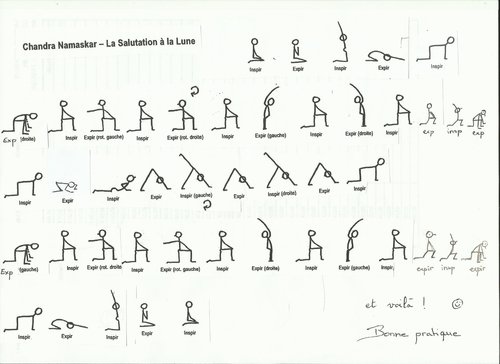 Chandra Namaskar – La Salutation à la Lune
Inspir Expir Inspir Expir Inspir
Exp (droite) Inspir Expir (rot. gauche) Inspir Expir (rot. droite) Inspir Expir (gauche) Inspir Expir (droite) Inspir exp insp exp
Inspir Expir Inspir Expir Inspir (gauche) Expir Inspir (droite) Expir Inspir
Exp (gauche) Inspir Expir (rot. droite) Inspir Expir (rot. gauche) Inspir Expir (droite) Inspir Expir (gauche) Inspir expir insp expir
Inspir Expir Inspir Expir Inspir
et voilà !
Bonne pratique